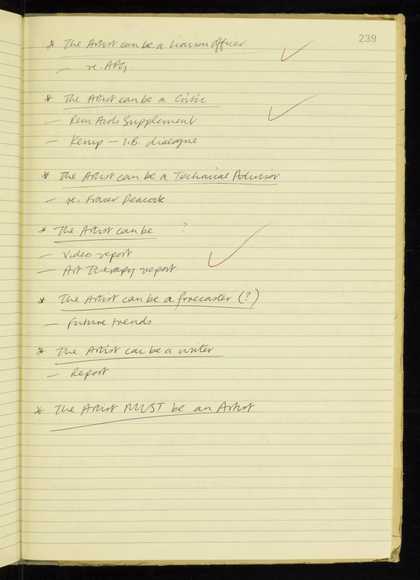 239
* The Artist can be a liaison officer
— re. APG
* The Artist can be a Critic
— Arts Supplement
— Kemp — I.B. dialogue
* The Artist can be a Technical Advisor
— re. Fraser Peacock
* The Artist can be ?
— Video report
— Art Therapy report
* The Artist can be a forecaster (?)
— Future trends
* The Artist can be a writer
— Report
* The Artist MUST be an Artist